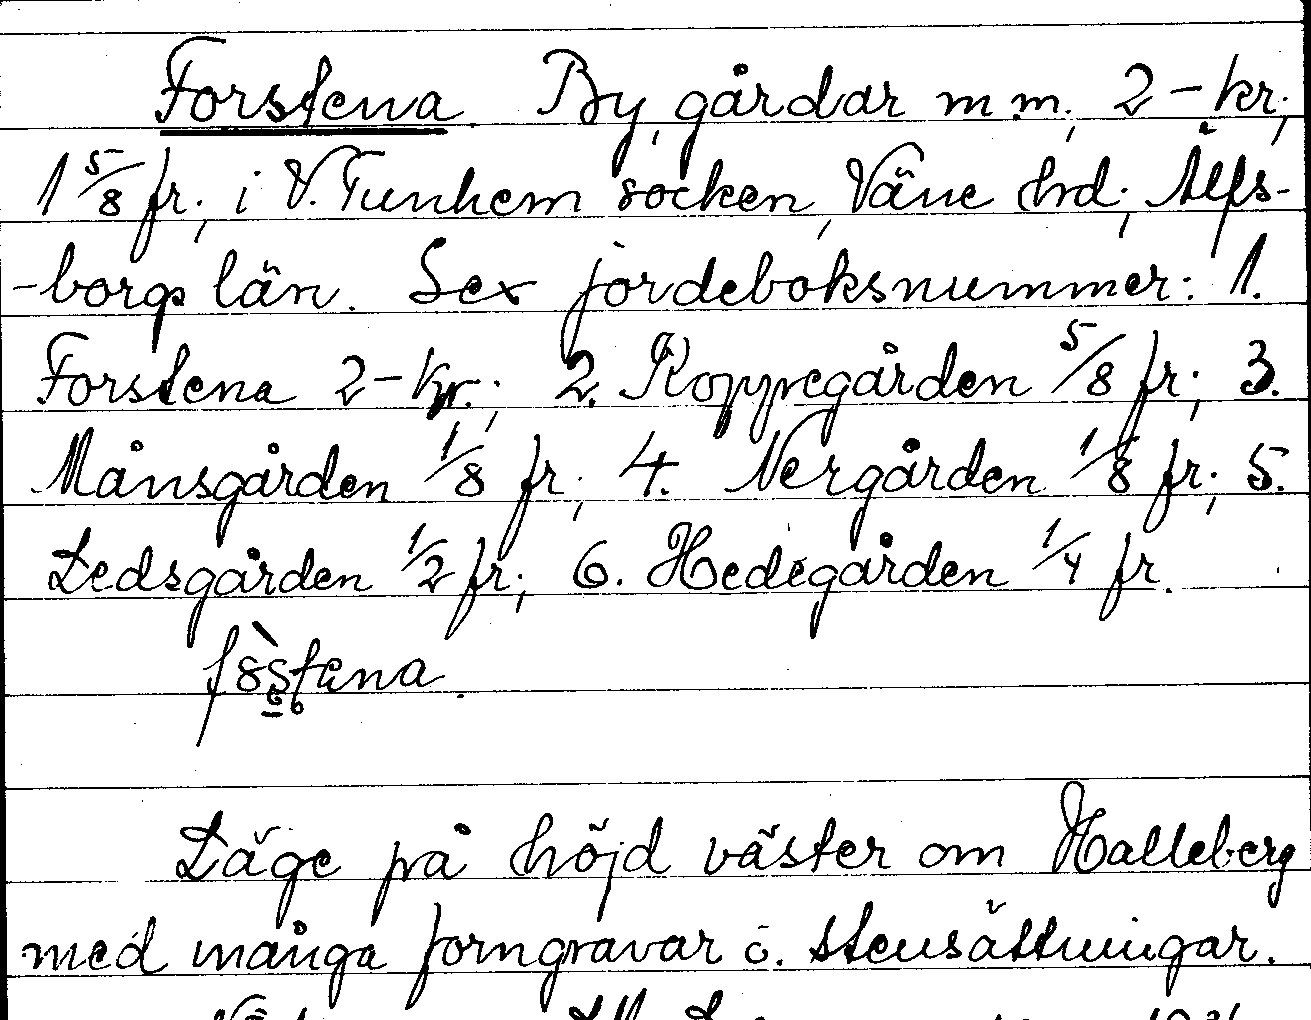 Forstena. By, gårdar m.m.; 2-kr;
1 5/8 fr.; i V. Tunhem socken, Väne hrd; Älfs-
-borgs län. Sex jordeboksnummer: 1.
Forstena 2-kr.; 2. Koppregården 5/8 fr; 3.
Månsgården 1/8 fr; 4. Nergården 1/8 fr; 5.
Ledsgården 1/2 fr; 6. Hedegården 1/4 fr.
Läge på höjd väster om Halleberg
med många forngravar o. stensättningar.